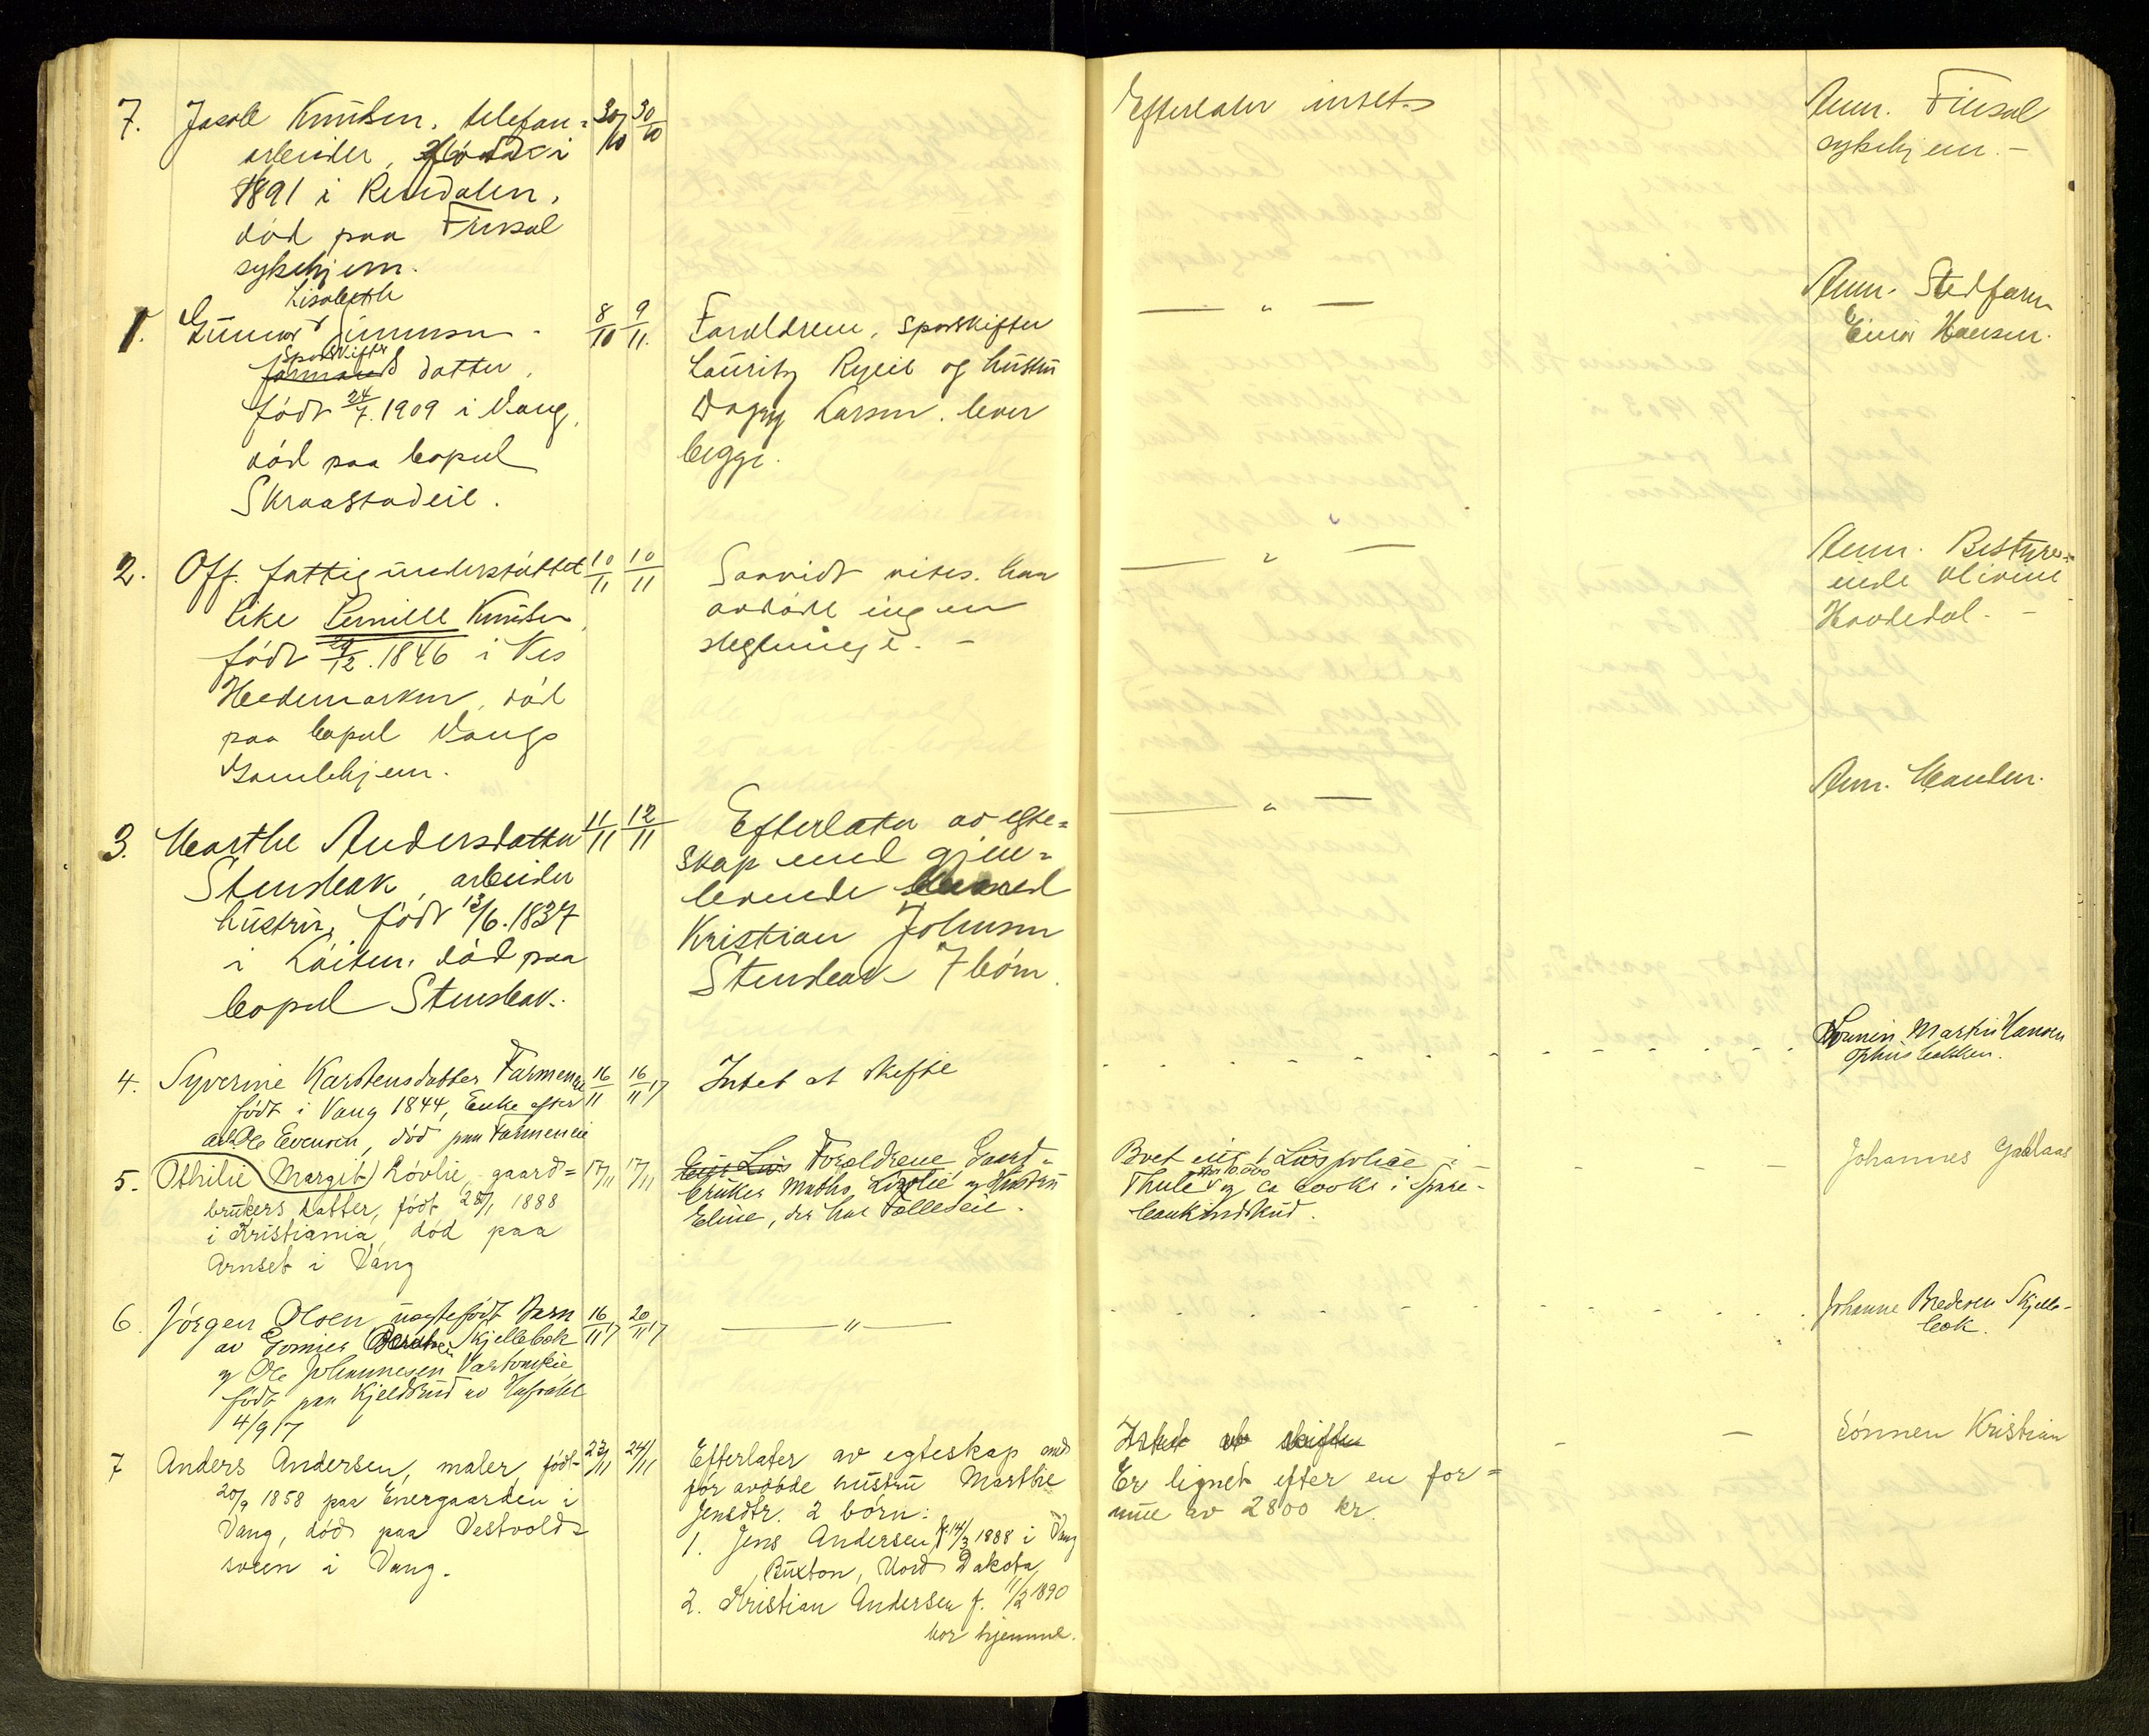 7. Jacob Knudsen, telefon=
arbeider, født i
1891 i Rendalen,
død paa Finsal
sykehjem.
30/10 30/10
Efterlater intet.
Anm. Finsal
sykehjem. –
1. Gunvor Lisabeth
Sporskifter
formands datter,
født 24/7. 1909 i Vang,
død paa bopæl
Skraastadeie.
8/10 9/11.
Forældrene, sporskifter
Lauritz og hustru
Dagny Larsen. lever
begge.
— " —
Anm. Stedfar
Einar Hansen.
2. Off. fattigunderstøttet
Pike Pernille Knudsen,
født 29/12. 1846 i Nes
Hedemarken, død
paa bopæl Vangs
Gamlehjem.
10/11 10/11
Saavidt vites. har
avdøde ingen
slegtninge. –
— " —
Anm. Bestyre=
inde Olivine
Hovdedal. –
3. Marthe Andersdatter
Stensbak, arbeider
hustru, født 13/6. 1837
i Løiten, død paa
bopæl Stensbak.
11/11 12/11
Efterlater av egte=
skap med gjen=
levende
Kristian Johnsen
Stensbak 7 børn.
— " —
Anm. Manden.
4. Syverine Karstensdatter Farmeneie
født i Vang 1844, Enke efter
Ole Evensen, død paa Farmeneie
16/11 16/11 17
Intet at skifte
Martin Hansen
5. Othilie (Margit) Løvlie, gaard=
brukers datter, født 28/1 1888
i Kristiania, død paa
Arnset i Vang
17/11 17/11
Forældrene Gaard-
bruker Mathis Løvlie og Hustru
Eline,
Livspolice i
Thule kr 10.000 og ca i Spare-
bankindskud.
– –
Johannes
6. Jørgen Olsen uegtefødt Barn
av Skjellebæk
og Ole Johannesen
født paa
4/9 17
16/11 17 20/11 17
— " —
Johanne Skjelle-
bæk.
7 Anders Andersen, maler, født
20/9 1858 paa Energaarden i
Vang, død paa Vestvold-
sveen i Vang.
23/11 24/11
Efterlater av egteskap med
før avdøde hustru Marthe
Jensdtr. 2 børn:
1. Jens Andersen, f. 14/3 1888 i Vang
Buxton, Nord Dakota,
2. Kristian Andersen f. 11/2 1890
bor hjemme.
Intet at skifte
Er lignet efter en for=
mue av 2800 kr.
– –
Sønnen Kristian